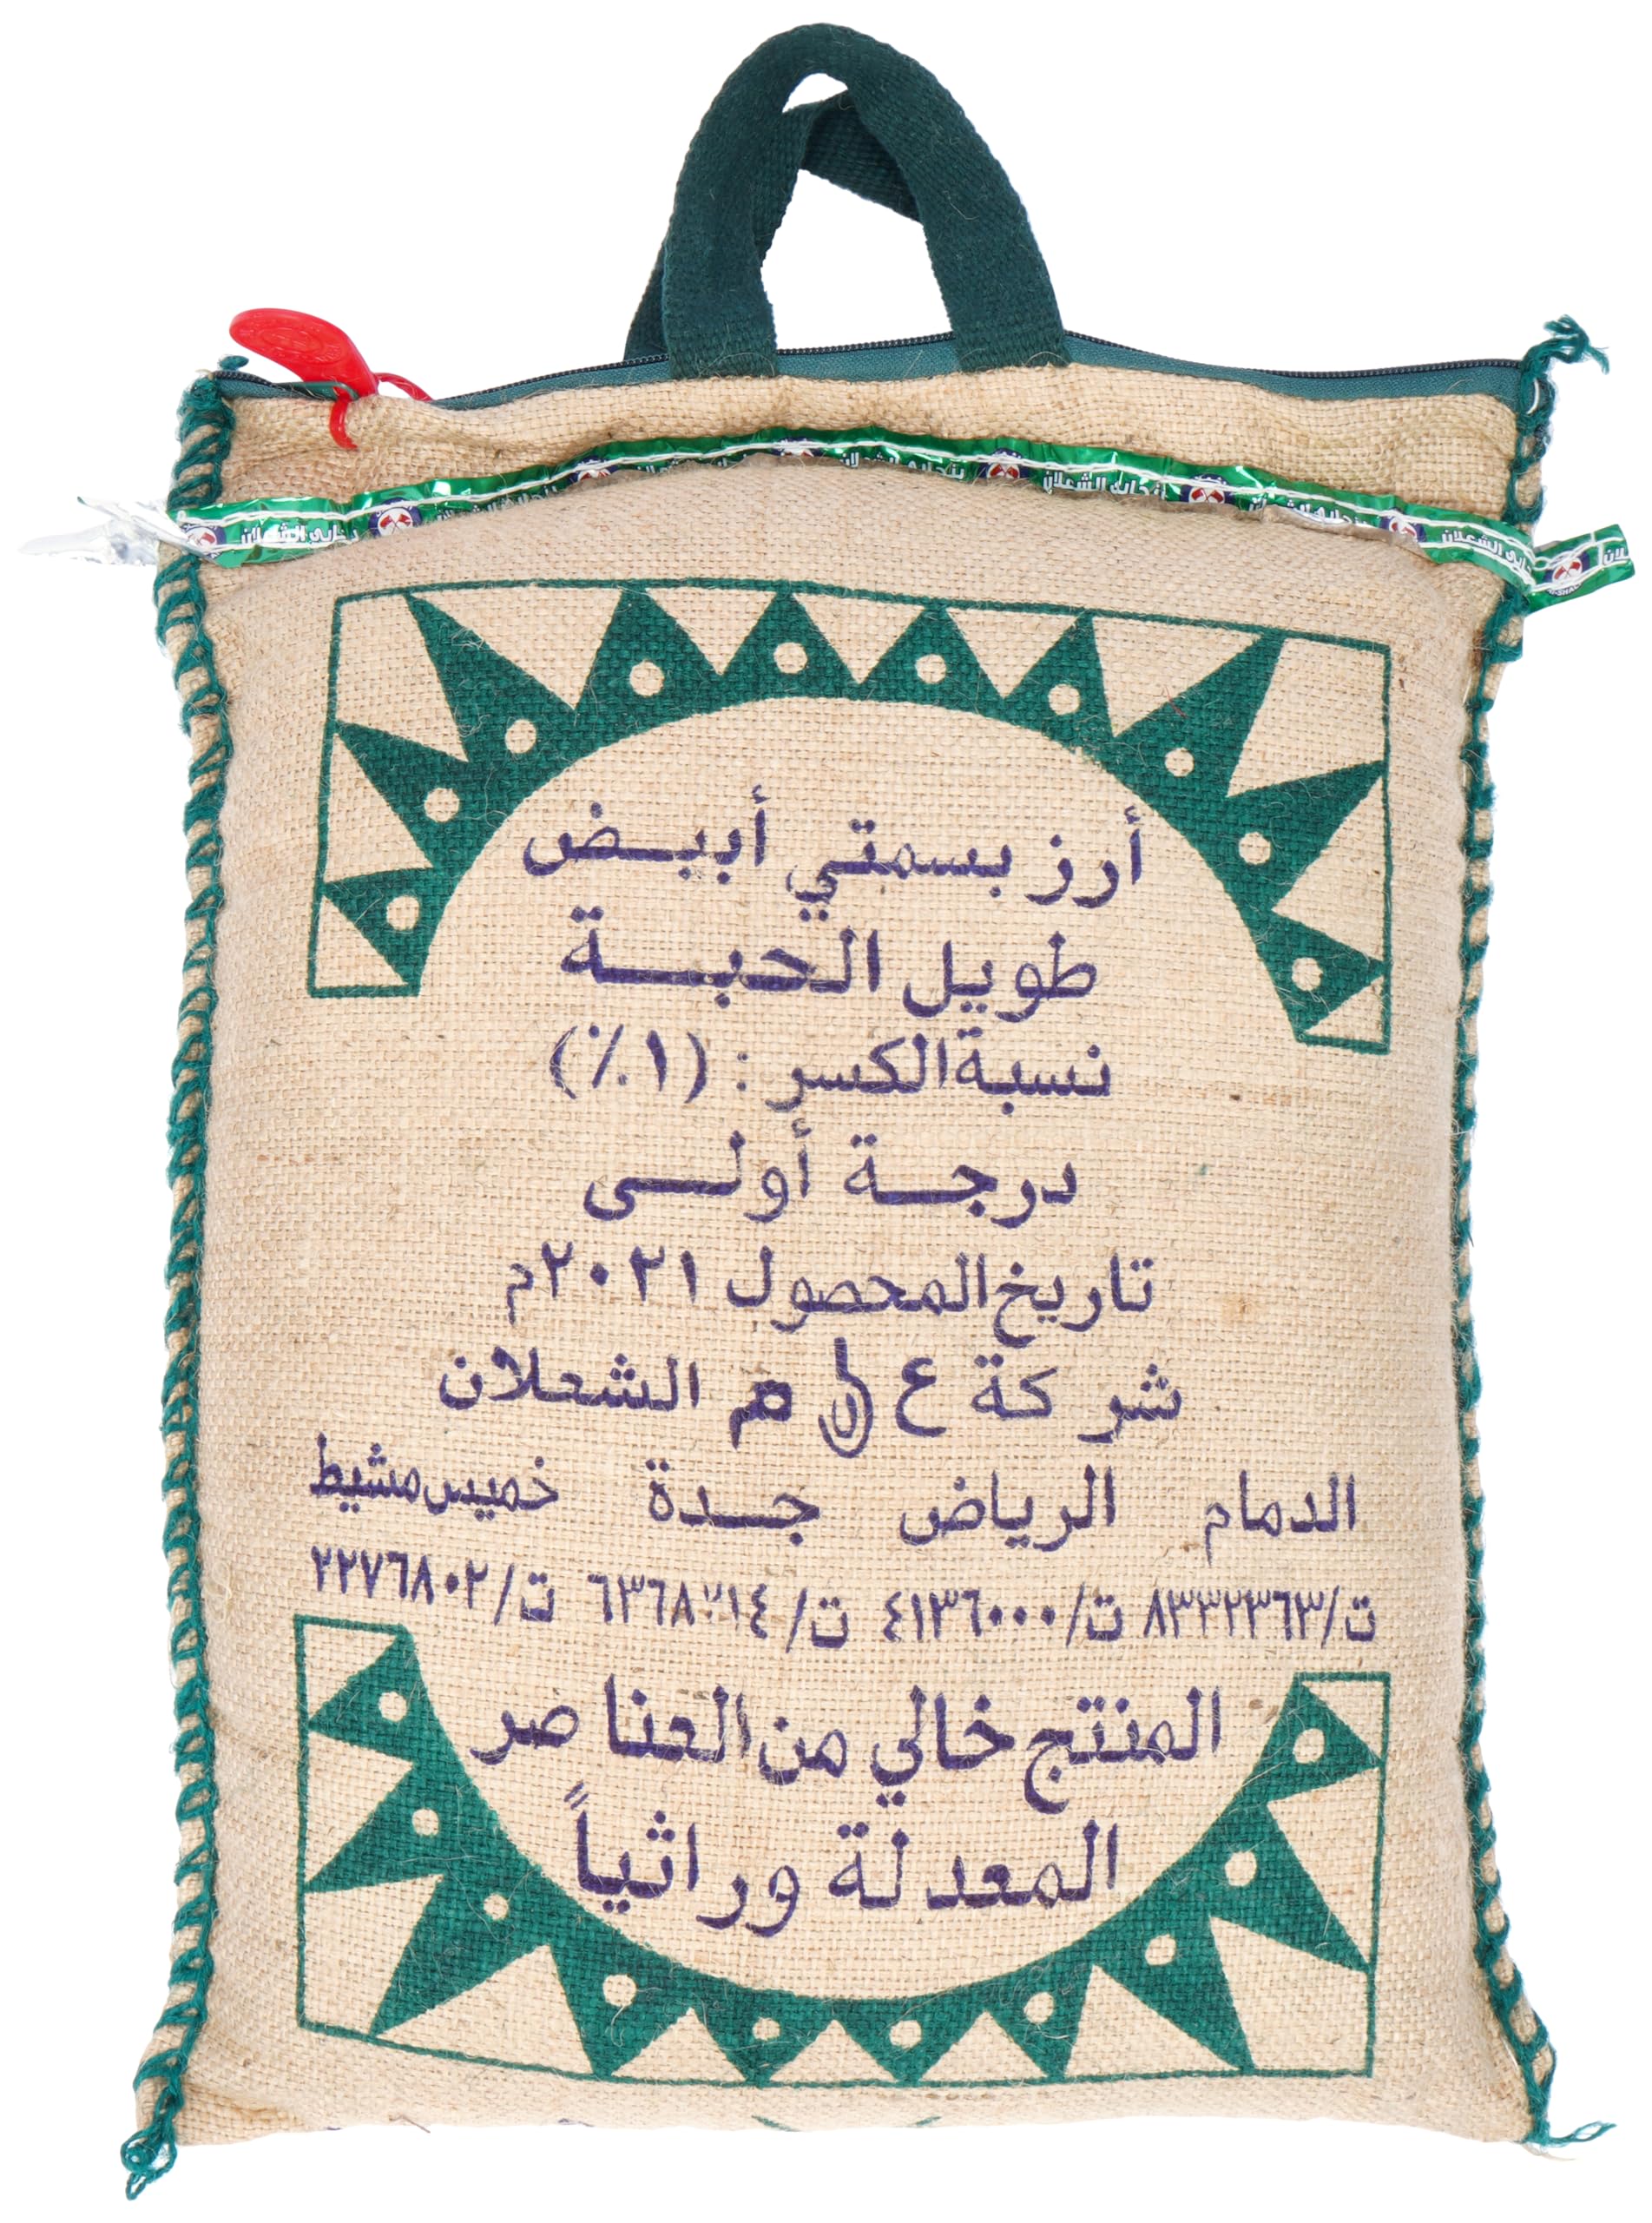 بنجابي الشعلان
أرز بسمتي أبيض
طويل الحبة
نسبة الكسر : (١٪)
درجة أولى
تاريخ المحصول ٢٠٢١م
شركة ع م الشعلان
الدمام الرياض جدة خميس مشيط
ت/٨٣٣٢٣٦٣ ت/٤١٣٦٠٠٠ ت/ ت/٢٢٧٦٨٠٢
المنتج خالي من العناصر
المعدلة وراثياً